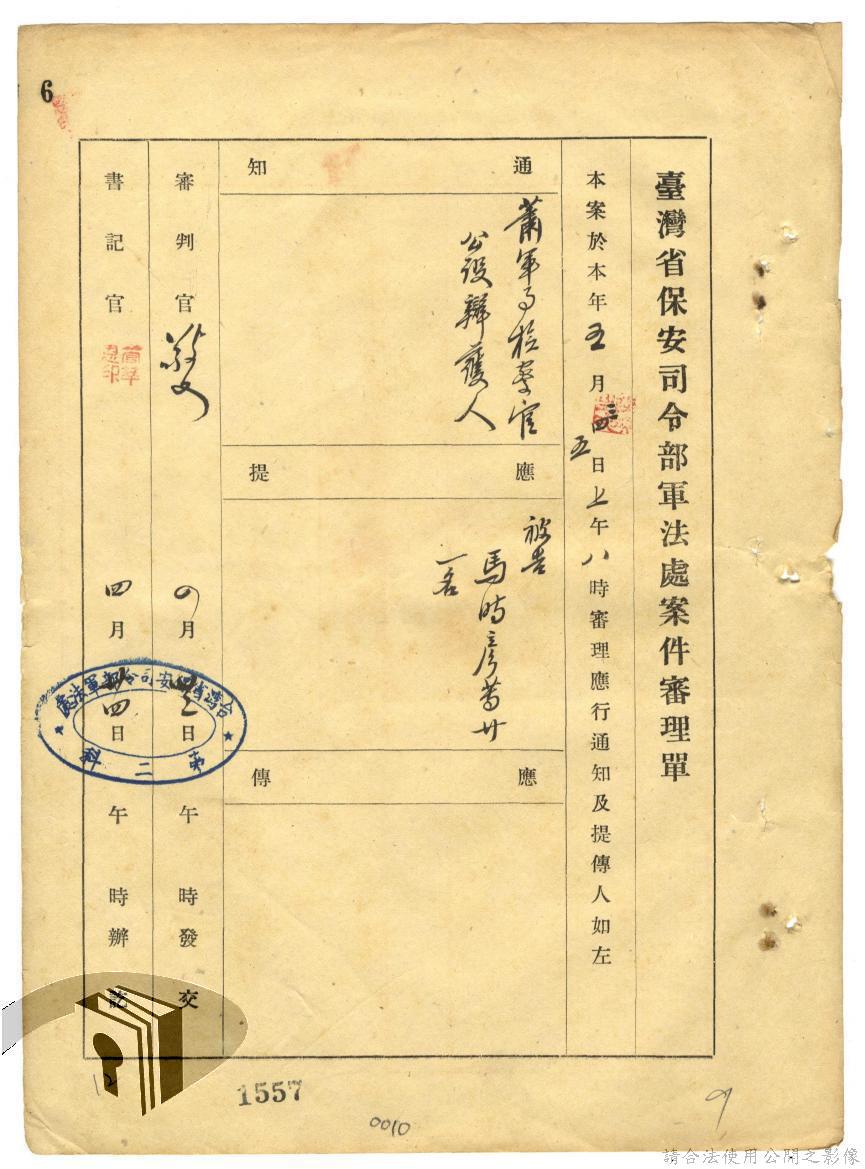 6
臺灣省保安司令部軍法處案件審理單
本案於本年五月三四五日上午八時審理應行通知及提傳人如左
通知
蕭軍事檢察官
公設辯護人
應提
被告
馬時彥等廿
一名
應傳
審判官 月 日 午 時發交
書記官 四月廿四日 午 時辦訖
台灣省保安司令部軍法處
第二科
1557
0010
12
9
請合法使用公開之影像